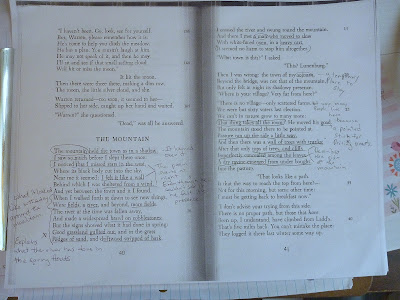 "I haven't been. Go, look, see for yourself.
But, Warren, please remember how it is:
He's come to help you ditch the meadow.
He has a plan. You mustn't laugh at him.
He may not speak of it, and then he may.
I'll sit and see if that small sailing cloud
Will hit or miss the moon."
It hit the moon.
Then there were three there, making a dim row,
The moon, the little silver cloud, and she.
Warren returned—too soon, it seemed to her,
Slipped to her side, caught up her hand and waited.
"Warren?" she questioned.
"Dead," was all he answered.
THE MOUNTAIN
The mountain held the town as in a shadow.
I saw so much before I slept there once:
I noticed that I missed stars in the west,
Where its black body cut into the sky.
Near me it seemed: I felt it like a wall
Behind which I was sheltered from a wind.
And yet between the town and it I found,
When I walked forth at dawn to see new things,
Were fields, a river, and beyond, more fields.
The river at the time was fallen away,
And made a widespread brawl on cobblestones;
But the signs showed what it had done in spring:
Good grassland gullied out, and in the grass
Ridges of sand, and driftwood stripped of bark.
Explain
what the river had done in
the spring floods.
40
I crossed the river and swung round the mountain.
And there I met a man who moved so slow
With white-faced oxen, in a heavy cart,
It seemed no harm to stop him altogether.
"What town is this?" I asked.
"This? Lunenburg."
Then I was wrong: the town of my sojourn,
Beyond the bridge, was not that of the mountain,
But only felt at night its shadowy presence.
"Where is your village? Very far from here?"
"There is no village—only scattered farms.
We were but sixty voters last election.
We can't in nature grow to many more:
That thing takes all the room!" He moved his goad.
The mountain stood there to be pointed at.
Pasture ran up the side a little way,
And then there was a wall of trees with trunks;
After that only tops of trees, and cliffs
Imperfectly concealed among the leaves.
A dry ravine emerged from under boughs
Into the pasture.
"That looks like a path.
Is that the way to reach the top from here?—
Not for this morning, but some other time:
I must be getting back to breakfast now."
"I don't advise your trying from this side.
There is no proper path, but those that have
Been up, I understand, have climbed from Ladd's.
That's five miles back. You can't mistake the place:
They logged it there last winter some way up.
41